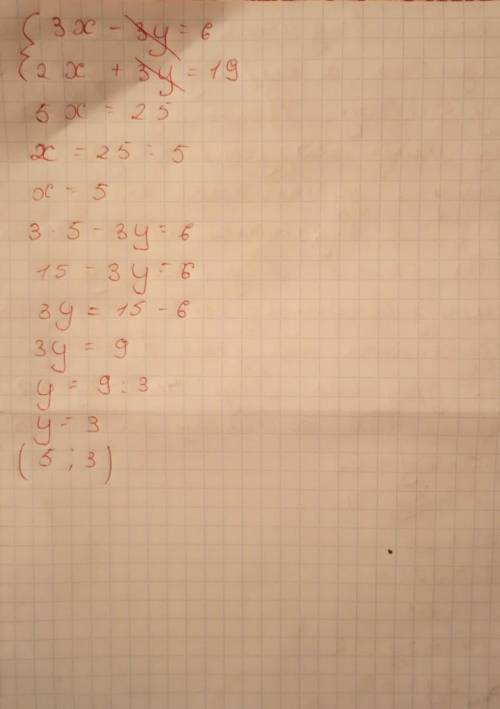 { 3x - 3y = 6
2x + 3y = 19
5x = 25
x = 25 : 5
x = 5
3 · 5 - 3y = 6
15 - 3y = 6
3y = 15 - 6
3y = 9
y = 9 : 3
y = 3
(5 ; 3)